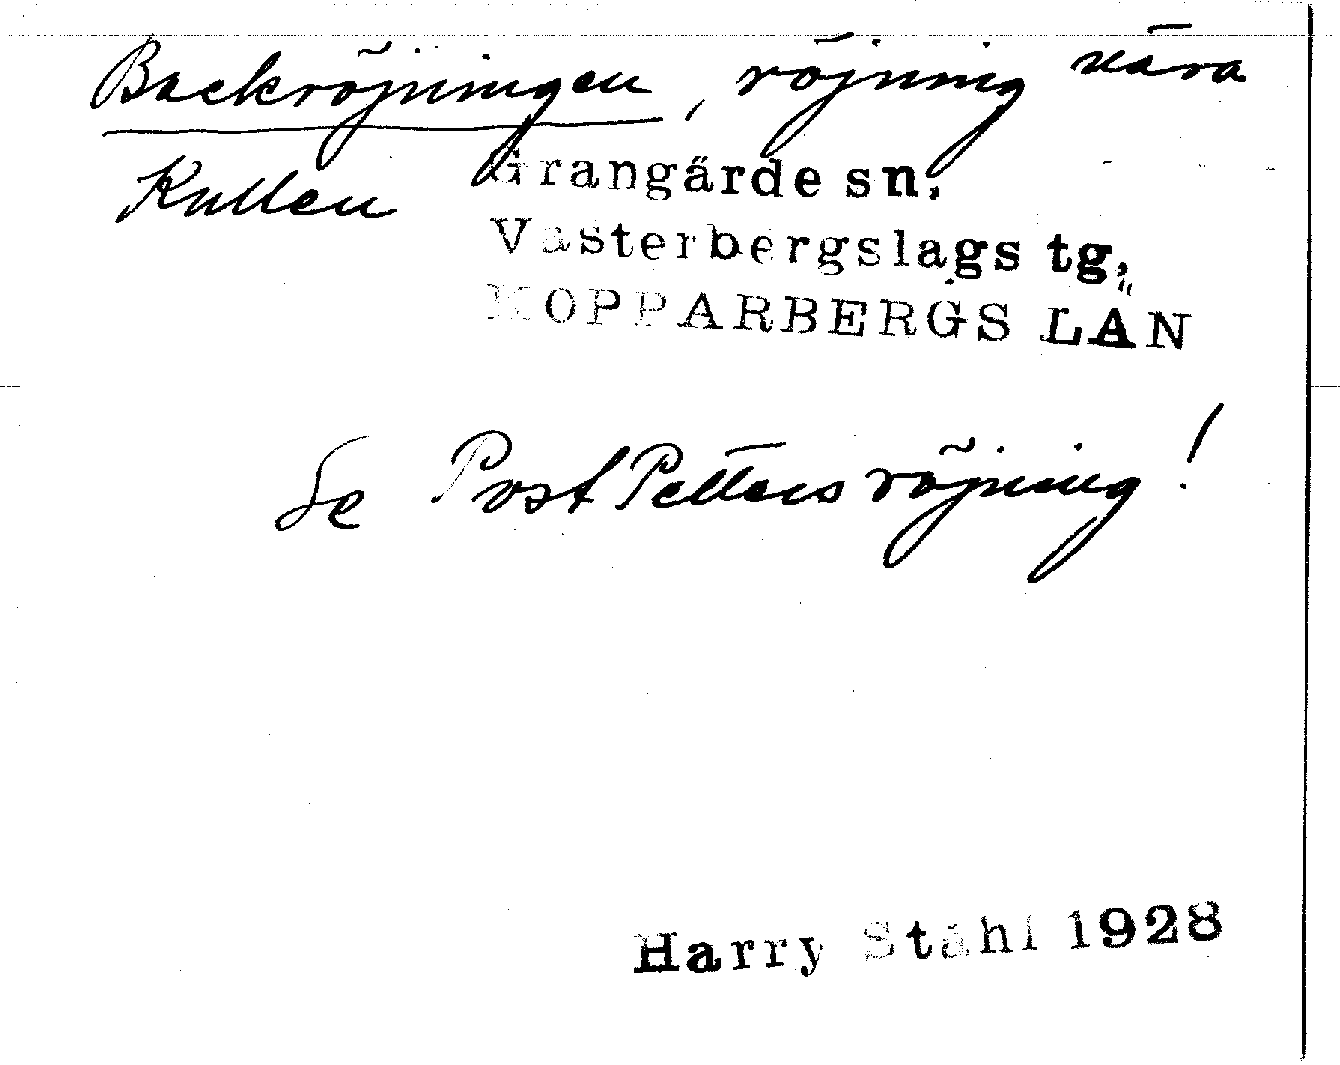 Backröjningen, röjning nära
Kullen
Grangärde sn,
Västerbergslags tg,
KOPPARBERGS LÄN
Se Post Petters röjning!
Harry Ståhl 1928